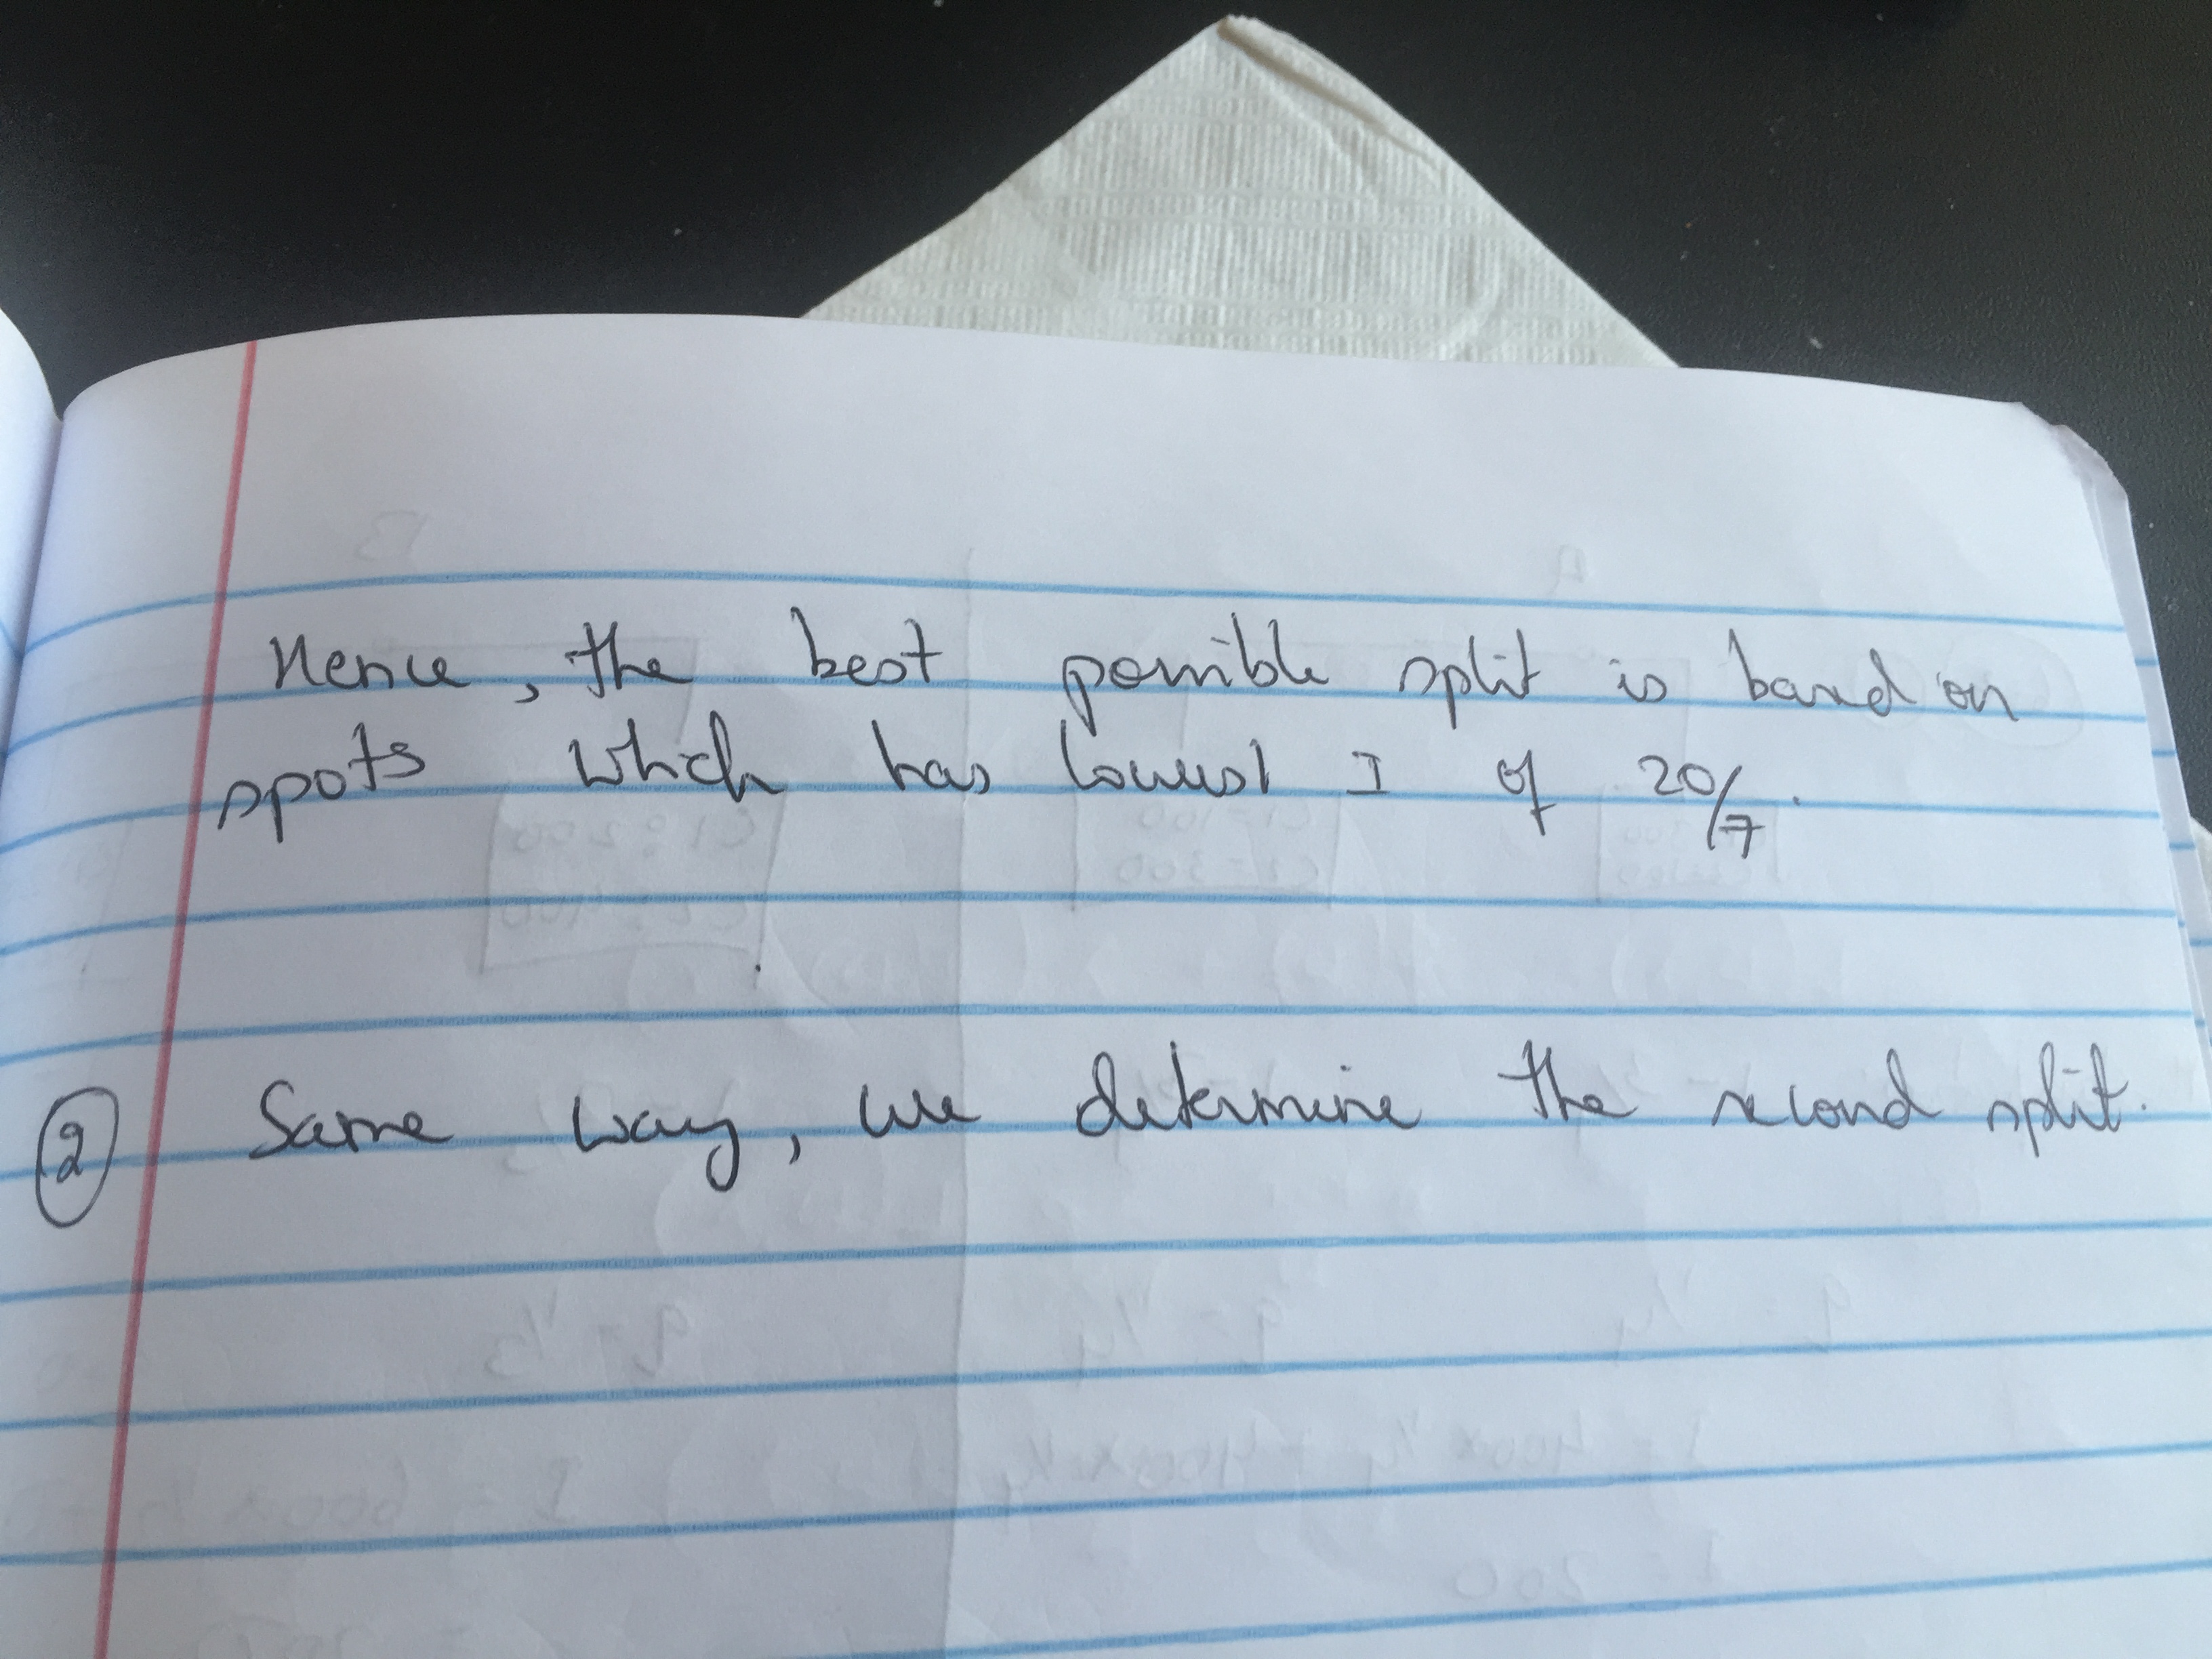 Hence, the best possible split is based on
spots which has lowest I of 20/7.
② Same way, we determine the second split.